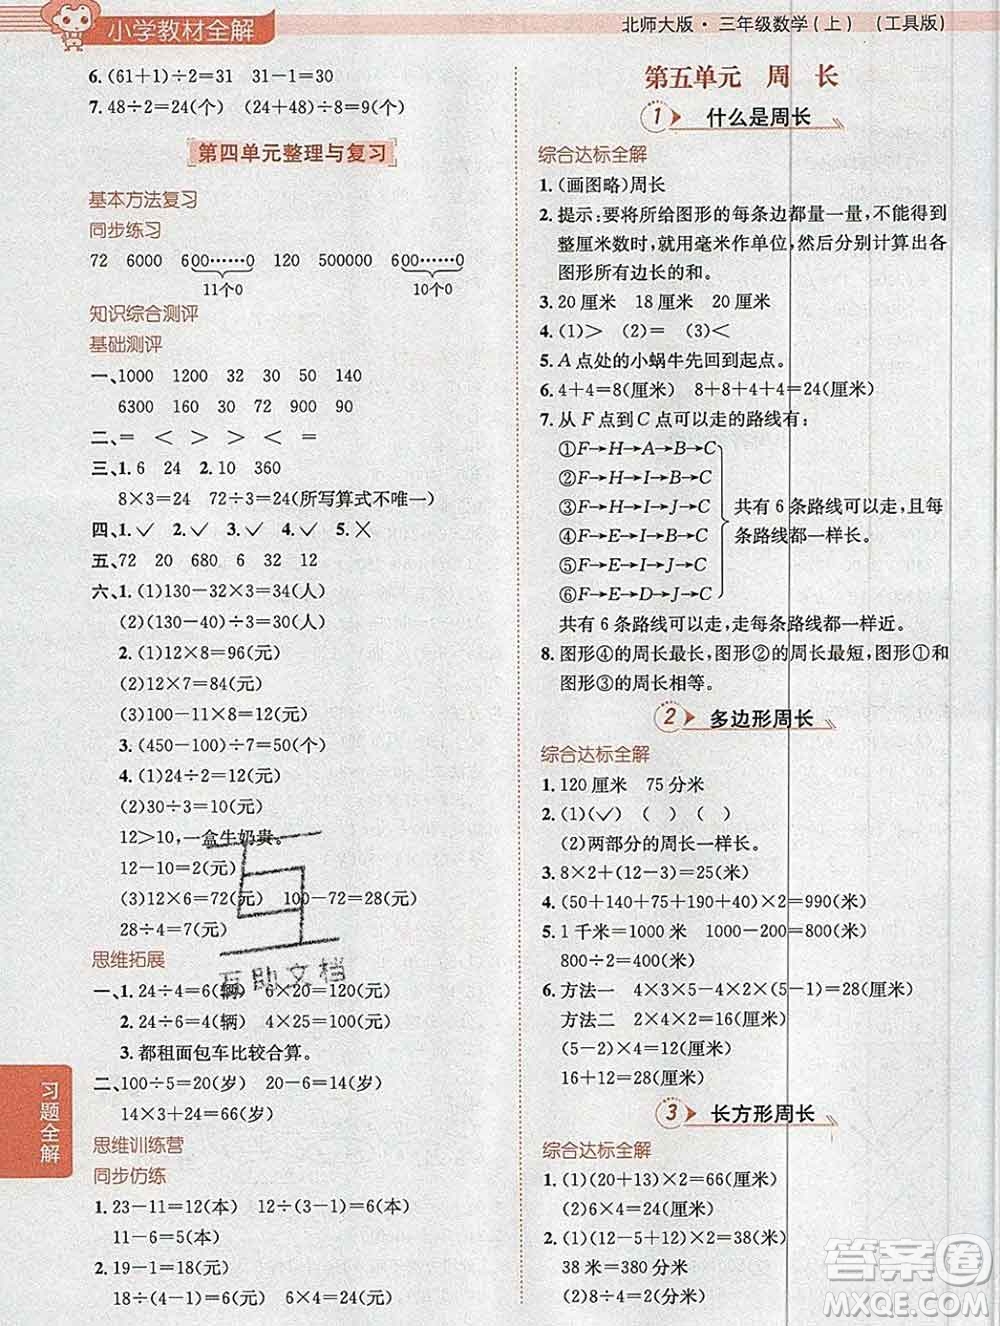 小学教材全解
北师大版·三年级数学(上) (工具版)
6. (61+1)÷2=31 31-1=30
7. 48÷2=24(个) (24+48)÷8=9(个)
第四单元整理与复习
基本方法复习
同步练习
72 6000 600……0 120 500000 600……0
11个0 10个0
知识综合测评
基础测评
一、1000 1200 32 30 50 140
6300 160 30 200 200
二、= < > > < =
三、1. 6 24 2. 10 360
8×3=24 72÷3=24(所写算式不唯一)
四、1. ✓ 2. ✓ 3. ✓ 4. ✓ 5. ×
五、72 20 680 6 32 12
六、1. (1)130-32×3=34(人)
(2)(130-40)÷3=30(人)
2. (1)12×8=96(元)
(2)12×7=84(元)
(3)100-11×8=12(元)
3. (450-100)÷7=50(个)
4. (1)24÷2=12(元)
(2)30÷3=10(元)
12>10,一盒牛奶贵。
12-10=2(元)
(3)12×6=72(元) 100-72=28(元)
28÷4=7(元)
思维拓展
一、1. 24÷4=6(辆) 6×20=120(元)
2. 24÷6=4(辆) 4×25=100(元)
3. 都租面包车比较合算。
二、100÷5=20(岁) 20-6=14(岁)
14×3+24=66(岁)
思维训练营
同步仿练
1. 23-11=12(本) 12÷(3-1)=6(本)
11-6=5(本)
2. 19-1=18(元)
18÷(4-1)=6(元) 6×4=24(元)
习题全解
第五单元 周 长
1 什么是周长
综合达标全解
1. (画图略)周长
2. 提示:要将所给图形的每条边都量一量,不能得到
整厘米数时,就用毫米作单位,然后分别计算出各
图形所有边长的和。
3. 20厘米 18厘米 20厘米
4. (1)> (2)= (3)<
5. A点处的小蜗牛先回到起点。
6. 4+4=8(厘米) 8+8+4+4=24(厘米)
7. 从F点到C点可以走的路线有:
①F→H→A→B→C
②F→H→I→B→C
③F→H→I→J→C
④F→E→I→B→C
⑤F→E→I→J→C
⑥F→E→D→J→C
共有6条路线可以走,且每
条路线都一样长。
共有6条路线可以走,走每条路线都一样近。
8. 图形④的周长最长,图形②的周长最短,图形①和
图形③的周长相等。
2 多边形周长
综合达标全解
1. 120厘米 75分米
2. (1)(✓) ( ) ( )
(2)两部分的周长一样长。
3. 8×2+(12-3)=25(米)
4. (50+140+75+145+40)×2=900(米)
5. 1千米=1000米 1000-200=800(米)
800÷2=400(米)
6. 方法一 4×3×5-4×2×(5-1)=28(厘米)
方法二 2×4×2=16(厘米)
(5-2)×4=12(厘米)
16+12=28(厘米)
3 长方形周长
综合达标全解
1. (1)(20+13)×2=66(厘米)
(2)6×4=24(厘米)
2. (1)(12+7)×2=38(米)
38米=380分米
(2)8÷4=2(厘米)
互助文档
答案圈
MXQE.COM